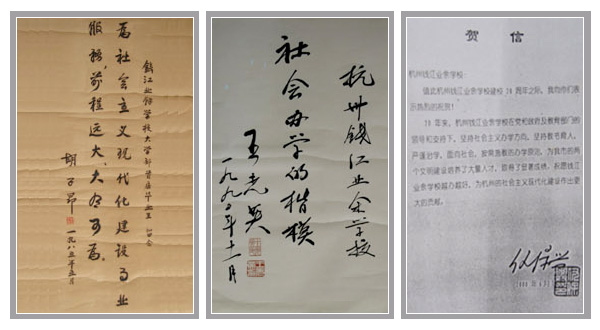 钱江业余学校大学部首届毕业生 留念
為社会主义现代化建设事业
服務，前程远大，大有可為。
胡子昂
一九八五年五月
杭州錢江业余学校
社会办学的楷模
王光英
一九九〇年十一月
贺 信
杭州钱江业余学校:
值此杭州钱江业余学校建校20周年之际，我向你们表
示热烈的祝贺!
20年来，杭州钱江业余学校在党和政府及教育部门的
领导和支持下，坚持社会主义办学方向，坚持教书育人、
严谨治学、面向社会、按需施教的办学原则，为我市的两
个文明建设培养了大量人才，取得了显著成绩，祝愿钱江
业余学校越办越好，为杭州的社会主义现代化建设作出更
大的贡献。
仇保兴